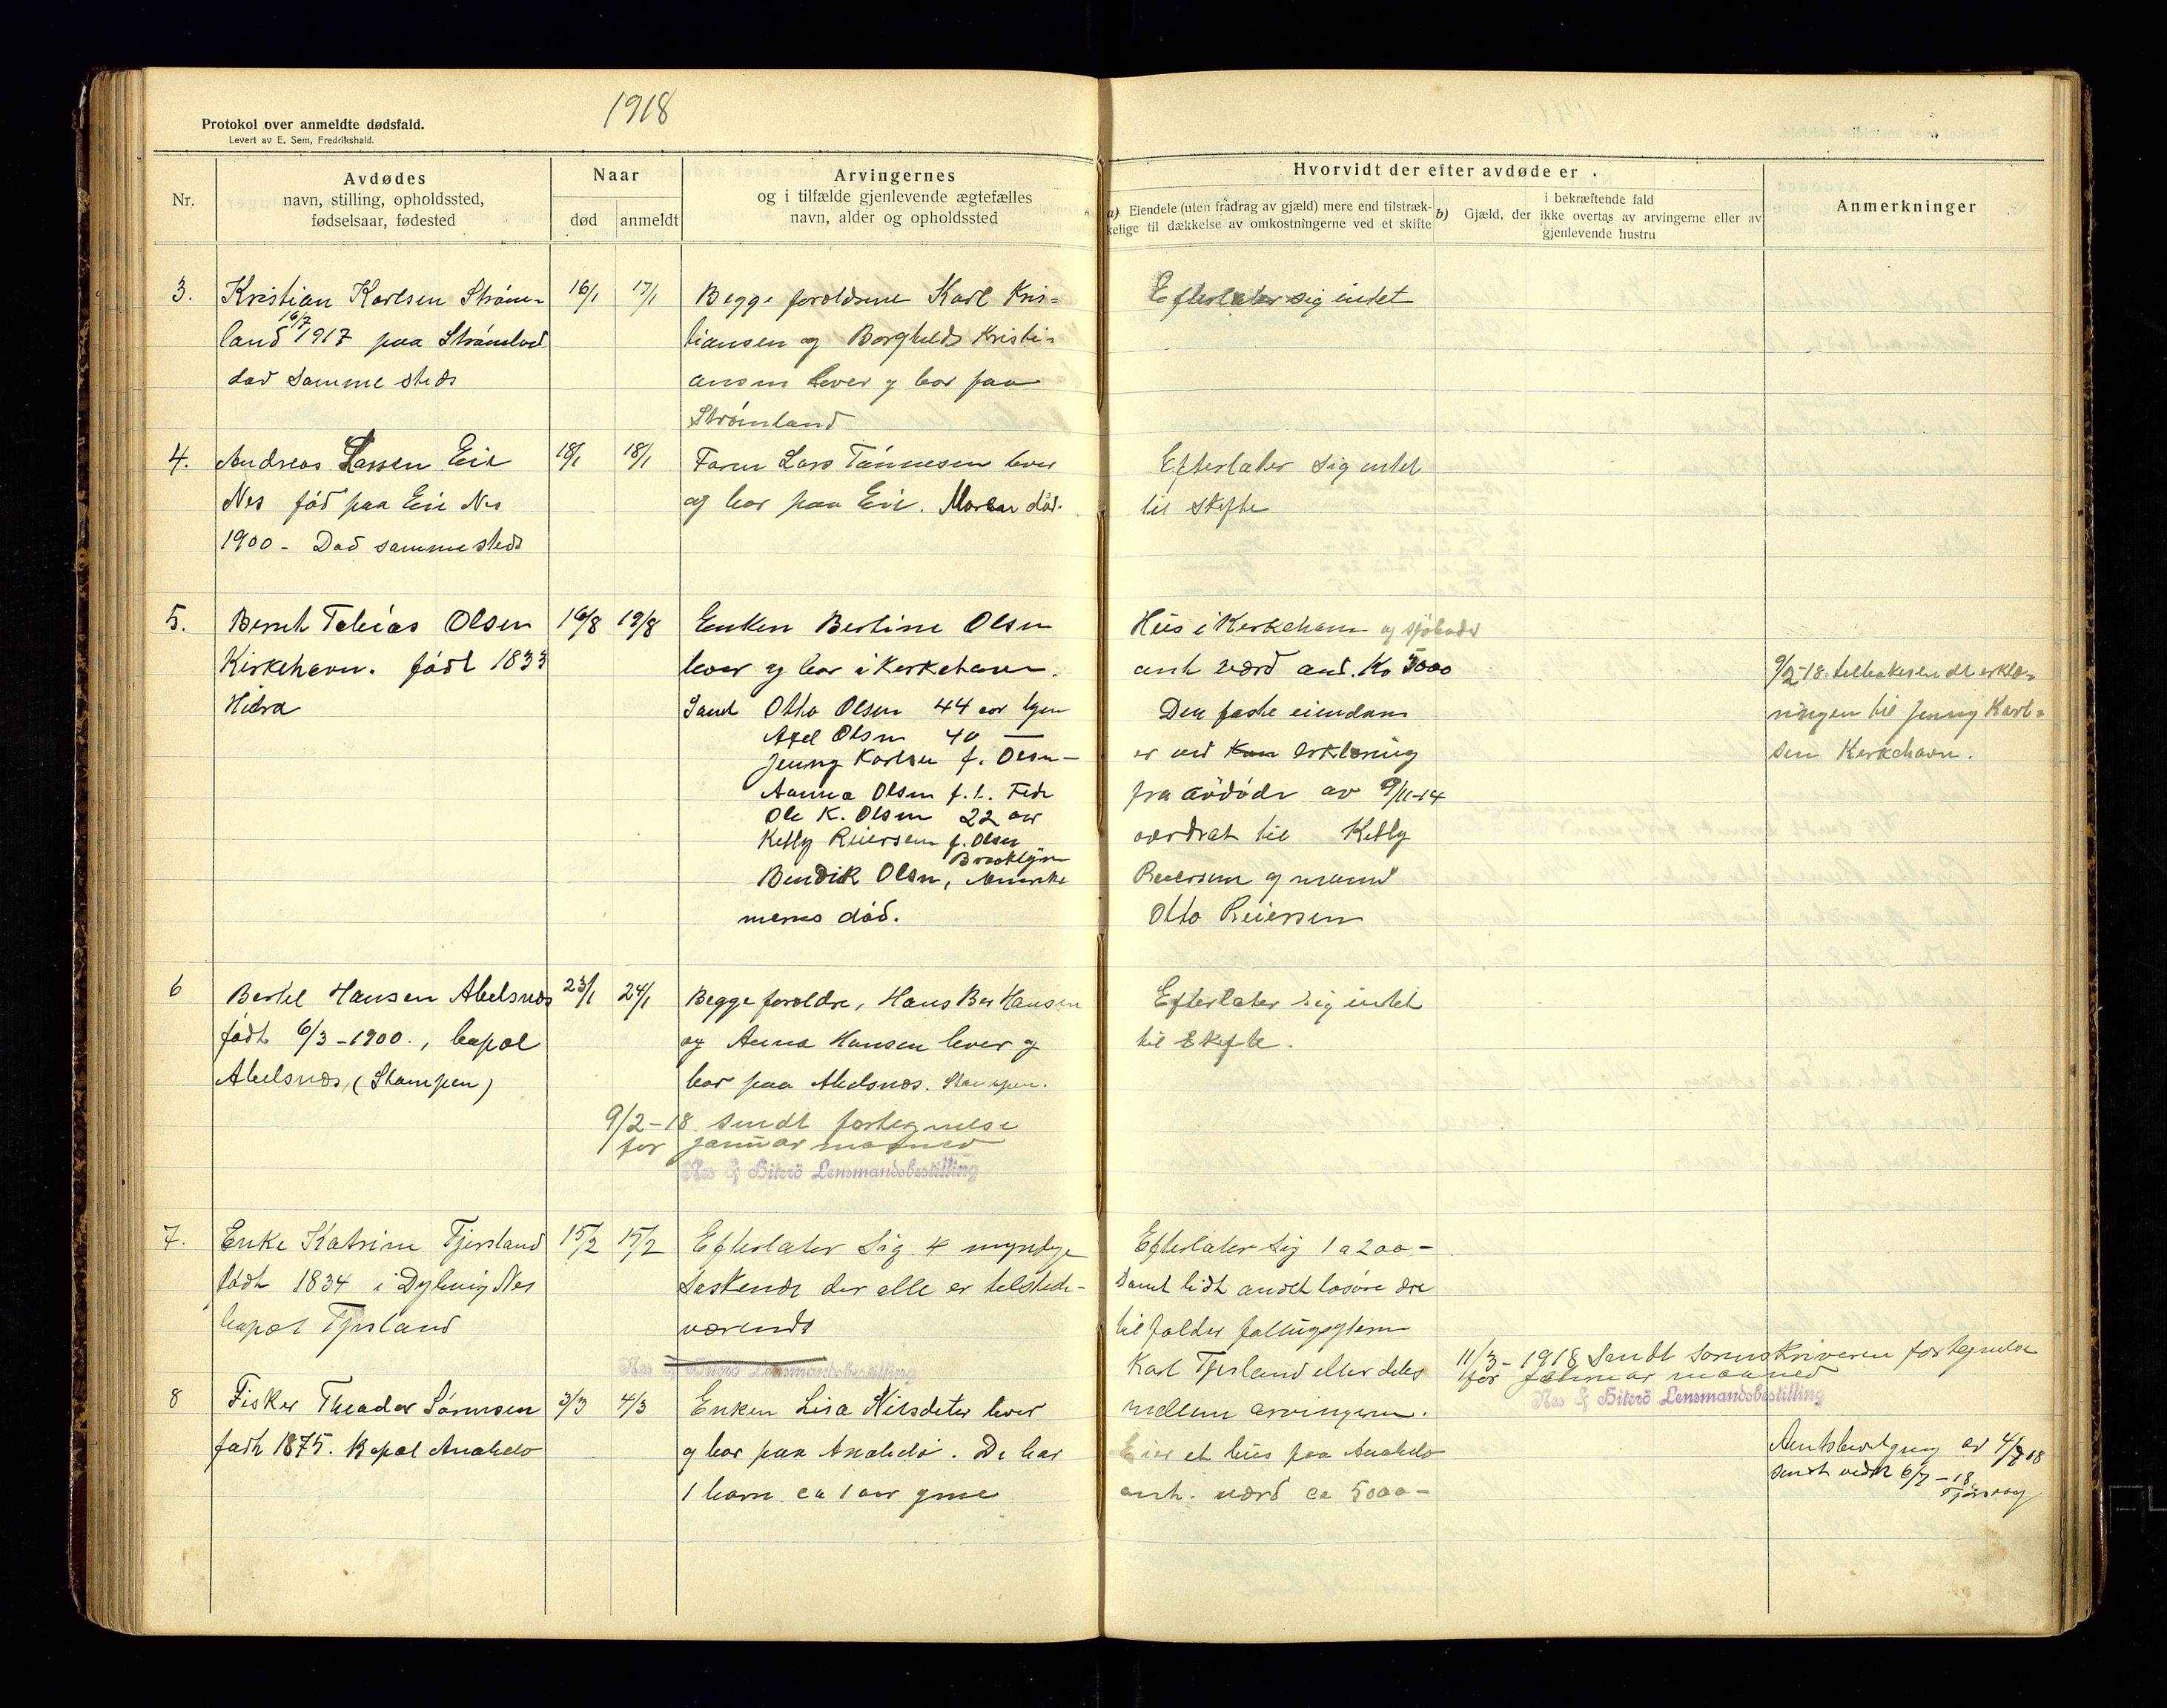 1918
Protokol over anmeldte dødsfald.
Levert av E. Sem, Fredrikshald.
Nr.
Avdødes
navn, stilling, opholdssted,
fødselsaar, fødested
Naar
død
anmeldt
Arvingernes
og i tilfælde gjenlevende ægtefælles
navn, alder og opholdssted
Hvorvidt der efter avdøde er
a) Eiendele (uten fradrag av gjæld) mere end tilstræk-
kelige til dækkelse av omkostningerne ved et skifte
b) Gjæld, der
i bekræftende fald
ikke overtas av arvingerne eller av
gjenlevende hustru
Anmerkninger
3.
Kristian Karlsen Strøm-
16/7
land 1917 paa Strømland
død samme steds
16/1
17/1
Begge foreldrene Karl Kris=
tiansen og Borghild Kristi=
ansen lever og bor paa
Strømland
Efterlater sig intet
4.
Andreas Larsen Eie
Nes fød paa Eie Nes
1900 - Død sammesteds
18/1
18/1
Faren Lars Tønnesen lever
og bor paa Eie. Moren død.
Efterlater sig intet
til skifte
5.
Bernt Tobias Olsen
Kirkehavn. født 1833
Hidra
16/8
19/8
Enken Bertine Olsen
lever og bor i Kirkehavn.
Samt Otto Olsen 44 aar
Axel Olsen 40 —
Jenny Karlsen f. Olsen —
Anna Olsen
Ole K. Olsen 22 aar
Ketty Reiersen f. Olsen
Brooklyn
Bendik Olsen, Amerika
menes død.
Hus i Kirkehavn og sjøboder
ant. værd and. Kr 3000
Den faste eiendom
er ved erklæring
fra avdøde av 9/11-14
overdrat til Ketty
Reiersen og mand
Otto Reiersen
9/2-18 tilbakesendt erklæ-
ringen til Jenny Karl=
sen Kirkehavn.
6
Bertel Hansen Abelsnes
født 6/3-1900., bopæl
Abelsnes, (Stampen)
23/1
24/1
Begge foreldre, Hans Ber Hansen
og Anna Hansen lever og
bor paa Abelsnes. Stampen.
Efterlater sig intet
til Skifte.
9/2-18 sendt fortegnelse
for januar maaned
Nes & Hiterö Lensmandsbestilling
7.
Enke Katrine Tjersland
født 1834 i Dybvig Nes
bopæl Tjersland
15/2
15/2
Efterlater sig 4 myndige
søskende der alle er tilstede-
værende
Efterlater sig 1 a 200 -
samt lidt andet løsøre
tilfalder
Karl Tjersland eller deles
mellem arvingerne.
11/3 - 1918 Sendt sorenskriveren fortegnelse
for februar maaned
Nes & Hiterö Lensmandsbestilling
Nes & Hiterö Lensmandsbestilling
8
Fisker Theodor Sørensen
født 1875. Bopæl Anabelø
3/3
4/3
Enken Lisa Nilsdeter lever
og bor paa Anabelø. De har
1 barn ca 1 aar
Eier et hus paa Anabelø
ant. værd ca 5000 -
av 4/7 18
sendt 6/7 - 18